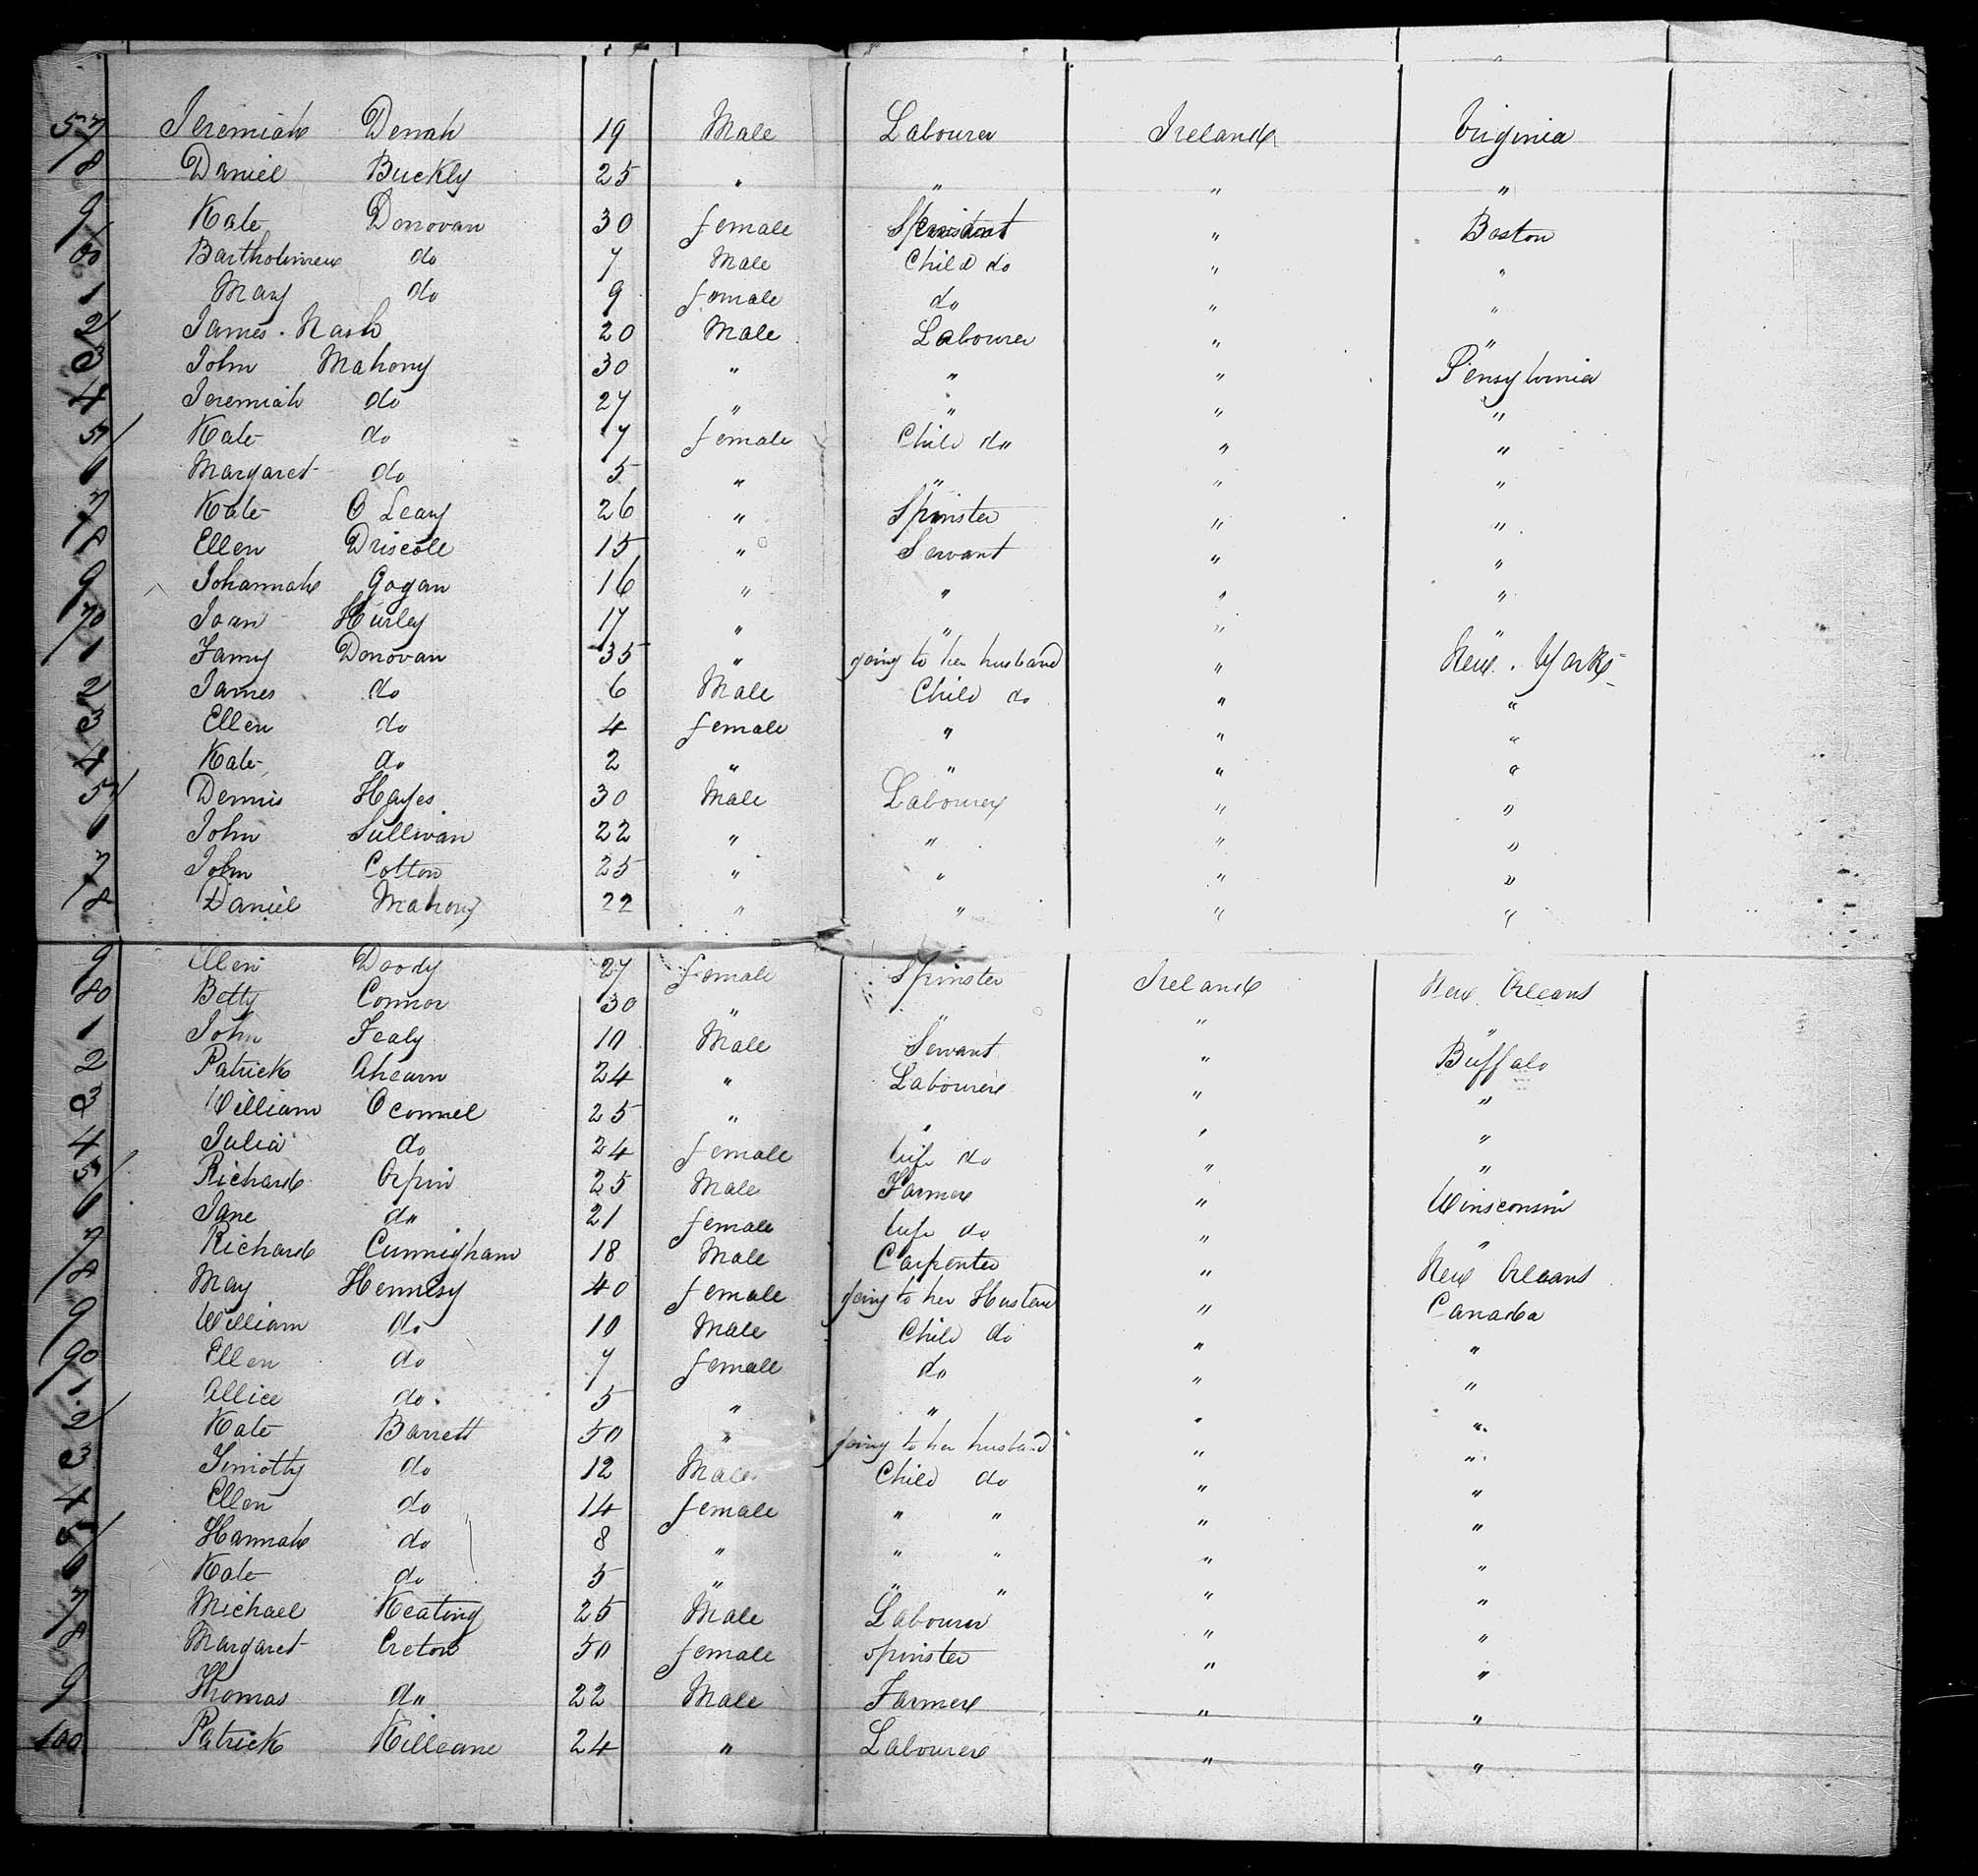 57 Jeremiah Denah 19 Male Labourer Ireland Virginia
8 Daniel Buckly 25 " " " "
9 Kate Donovan 30 female " Boston
60 Bartholimew do 7 Male Child do " "
1 Mary do 9 female do " "
2 James Nash 20 Male Labourer " "
3 John Mahony 30 " " " Pensylvinia
4 Jeremiah do 27 " " " "
5 Kate do 7 female Child do " "
6 Margaret do 5 " " " "
7 Kate O Leary 26 " Spinster " "
8 Ellen Driscole 15 " Servant " "
9 Johannah Gogan 16 " " " "
70 Joan Hurley 17 " " " "
1 Fanny Donovan 35 " going to her husband " New York
2 James do 6 Male Child do " "
3 Ellen do 4 female " " "
4 Kate do 2 " " " "
5 Dennis Hayes 30 Male Labourer " "
6 John Sullivan 22 " " " "
7 John Cotton 25 " " " "
8 Daniel Mahony 22 " " " "
9 Ellen Doody 27 female Spinster Ireland New Orleans
80 Betty Connor 30 " " " "
1 John Fealy 10 Male Servant " Buffalo
2 Patrick Ahearn 24 " Labourer " "
3 William Oconnel 25 " " " "
4 Julia do 24 female wife do " "
5 Richard Orpin 25 Male Farmer " Winsconsin
6 Jane do 21 female wife do " "
7 Richard Cunnigham 18 Male Carpenter " New Orleans
8 Mary Hennesy 40 female going to her Husband " Canada
9 William do 10 Male Child do " "
90 Ellen do 7 female do " "
1 Allice do 5 " " " "
2 Kate Barrett 50 " going to her husband " "
3 Timothy do 12 Male Child do " "
4 Ellen do 14 female " " " "
5 Hannah do 8 " " " " "
6 Kate do 5 " " " " "
7 Michael Keating 25 Male Labourer " "
8 Margaret Creton 50 female spinster " "
9 Thomas do 22 Male Farmer " "
100 Patrick Killeane 24 " Labourer " "